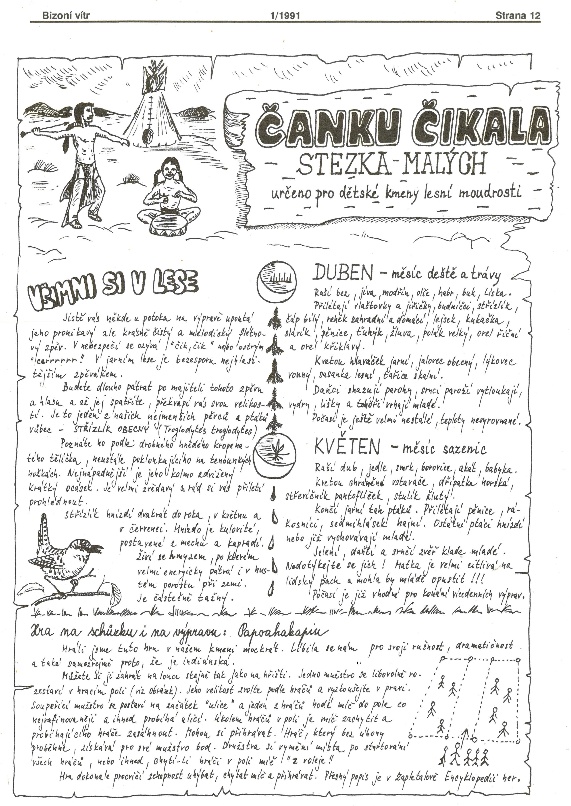 Bizoní vítr 1/1991 Strana 12
ČANKU ČIKALA
STEZKA-MALÝCH
určeno pro dětské kmeny lesní moudrosti
VŠIMNI SI V LESE
Jistě vás někde u potoka na výpravě upoutá
jeho pronikavý ale krásně čistý a melodický
zpěv. V nebezpečí se ozývá "čik, čik" nebo ostrým
"cerrrrrr". V jarním lese je bezesporu nejhlas-
tějším zpěvákem.
Budete dlouho pátrat po majiteli tohoto zpěvu
a hlasu a až jej spatříte, překvapí vás svou velikos-
tí. Je to jeden z našich nejmenších pěvců a ptáků
vůbec - STŘÍZLÍK OBECNÝ (Troglodytes troglodytes)
Poznáte ho podle drobného hnědého kropena-
tého tělíčka, neustále poklonkujícího na tenounkých
nožkách. Nejnápadnější je jeho kolmo zdvižený
krátký ocásek. Je velmi zvědavý a rád si vás přiletí
prohlédnout.
Střízlík hnízdí dvakrát do roka, v květnu a
v červenci. Hnízdo je kulovité,
postavené z mechu a kapradí.
Živí se hmyzem, po kterém
velmi energicky pátrá i v hus-
tém porostu při zemi.
Je částečně tažný.
DUBEN - měsíc deště a trávy
Raší bez, jíva, modřín, olše, habr, buk, líska.
Přilétají vlaštovky a jiřičky, budníčci, střízlík,
čáp bílý, rehek zahradní a domácí, lejsek, kukačka,
slavík, pěnice, ťuhýk, žluva, polák velký, orel říční
a orel křiklavý.
Kvetou hlaváček jarní, jalovec obecný, lýkovec
vonný, sasanka lesní, tařice skalní.
Daňci shazují parohy, srnci paroží vytloukají,
vydry, lišky a tchoři vrhají mladé.
Počasí je ještě velmi nestálé, teploty nevyrovnané.
KVĚTEN - měsíc sazenic
Raší dub, jedle, smrk, borovice, akát, babyka.
Kvetou chráněné vstavače, dřípatka horská,
střevičník pantoflíček, stulík žlutý.
Končí jarní tah ptáků. Přilétají pěnice, rá-
kosníci, sedmihlásek hajní. Ostatní ptáci hnízdí
nebo již vychovávají mladé.
Jelení, dančí a srnčí zvěř klade mladé.
Nedotýkejte se jich! Matka je velmi citlivá na
lidský pach a mohla by mládě opustit!!!
Počasí je již vhodné pro konání vícedenních výprav.
Hra na schůzku i na výpravu: Papoahakapiu
Hráli jsme tuto hru v našem kmeni mockrát. Líbila se nám pro svoji ručnost, dramatičnost
a také samozřejmě proto, že je indiánská.
Můžete si ji zahrát na louce stejně tak jako na hřišti. Jedno mužstvo se libovolně ro-
zestaví v hracím poli (viz obrázek). Jeho velikost zvolte podle hráčů a vyzkoušejte v praxi.
Soupeřící mužstvo se postaví na začátek "ulice" a jeden z hráčů hodí míč do pole co
nejrafinovaněji a ihned probíhá ulicí. Úkolem hráčů v poli je míč zachytit a
probíhajícího hráče zasáhnout. Mohou si přihrávat. Hráč, který bez úhony
proběhne, získává pro své mužstvo bod. Družstva si vymění místa po startování
všech hráčů, nebo ihned, chytí-li hráči v poli míč "z voleje"!
Hra dokonale procvičí schopnost uhýbat, chytat míč a přihrávat. Přesný popis je v Zapletalově Encyklopedii her.